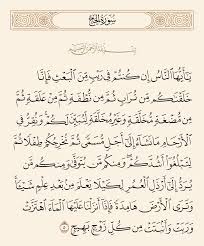 سُورَةُ الحَجِّ
بِسۡمِ ٱللَّهِ ٱلرَّحۡمَٰنِ ٱلرَّحِيمِ
يَٰٓأَيُّهَا ٱلنَّاسُ إِن كُنتُمۡ فِي رَيۡبٖ مِّنَ ٱلۡبَعۡثِ فَإِنَّا
خَلَقۡنَٰكُم مِّن تُرَابٖ ثُمَّ مِن نُّطۡفَةٖ ثُمَّ مِنۡ عَلَقَةٖ ثُمَّ
مِن مُّضۡغَةٖ مُّخَلَّقَةٖ وَغَيۡرِ مُخَلَّقَةٖ لِّنُبَيِّنَ لَكُمۡۚ وَنُقِرُّ فِي
ٱلۡأَرۡحَامِ مَا نَشَآءُ إِلَىٰٓ أَجَلٖ مُّسَمّٗى ثُمَّ نُخۡرِجُكُمۡ طِفۡلٗا ثُمَّ
لِتَبۡلُغُوٓاْ أَشُدَّكُمۡۖ وَمِنكُم مَّن يُتَوَفَّىٰ وَمِنكُم مَّن
يُرَدُّ إِلَىٰٓ أَرۡذَلِ ٱلۡعُمُرِ لِكَيۡلَا يَعۡلَمَ مِنۢ بَعۡدِ عِلۡمٖ شَيۡـٔٗاۚ
وَتَرَى ٱلۡأَرۡضَ هَامِدَةٗ فَإِذَآ أَنزَلۡنَا عَلَيۡهَا ٱلۡمَآءَ ٱهۡتَزَّتۡ
وَرَبَتۡ وَأَنۢبَتَتۡ مِن كُلِّ زَوۡجِۭ بَهِيجٖ ٥